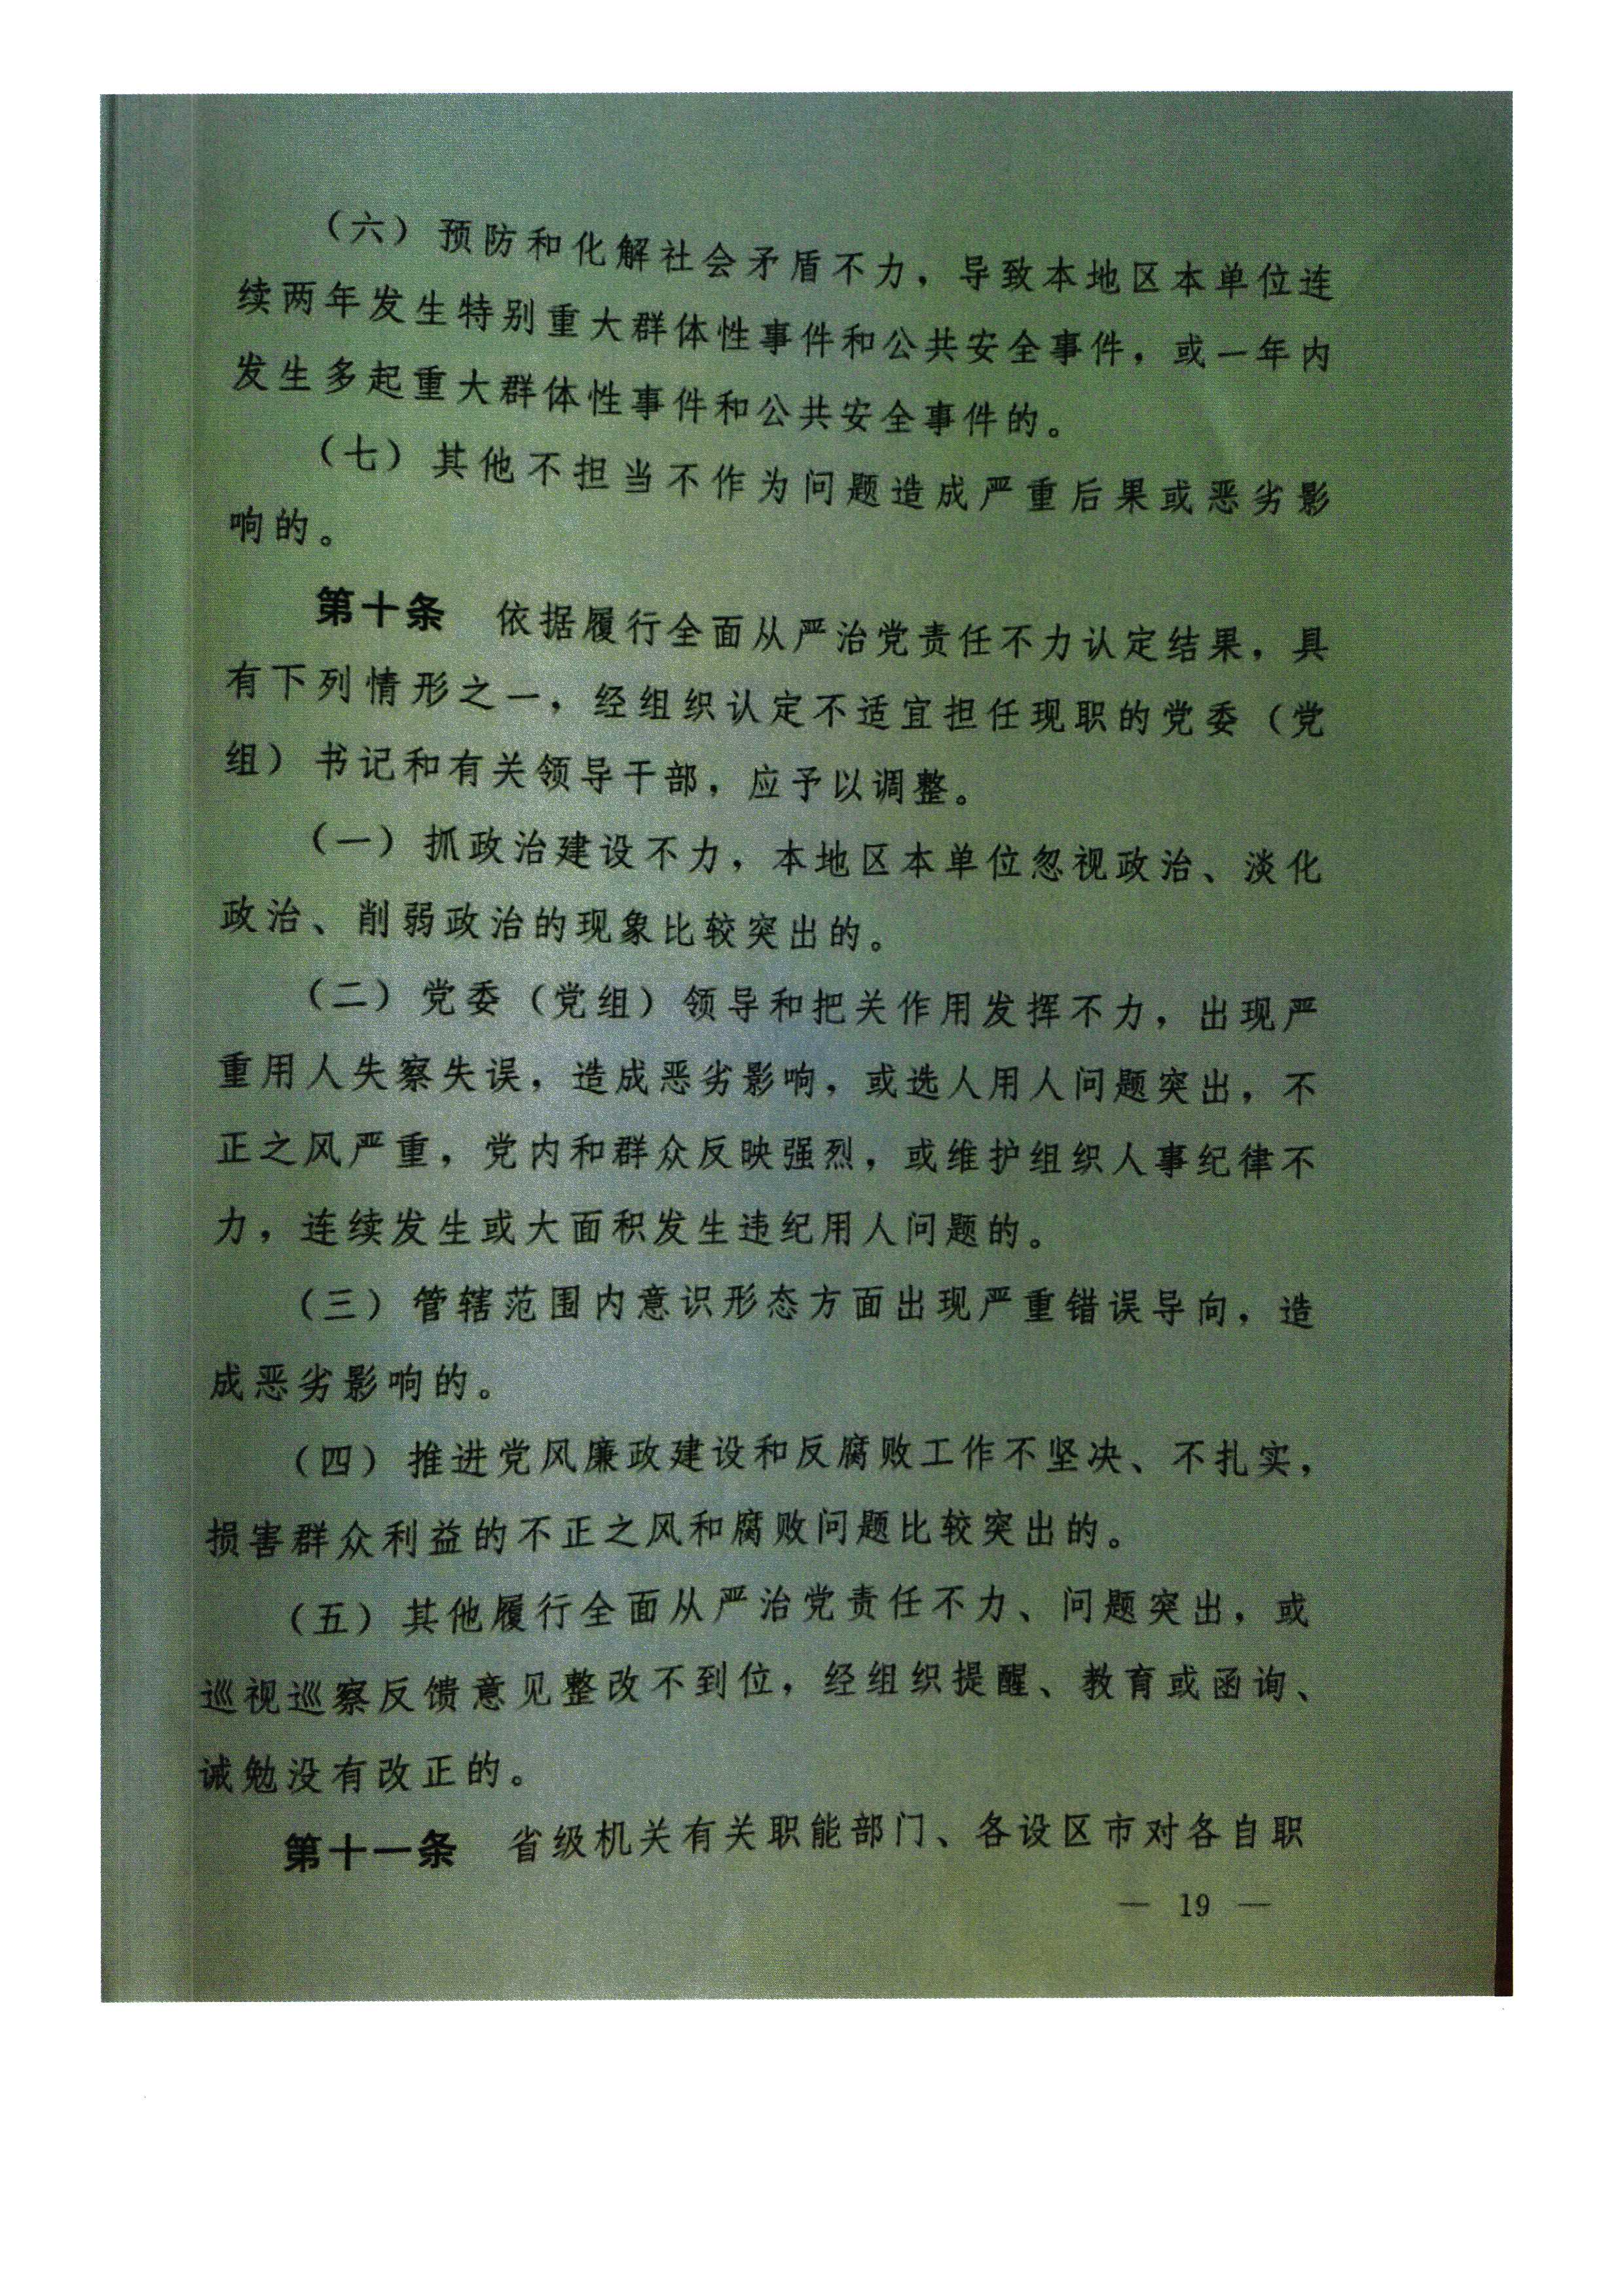 （六）预防和化解社会矛盾不力，导致本地区本单位连
续两年发生特别重大群体性事件和公共安全事件，或一年内
发生多起重大群体性事件和公共安全事件的。
（七）其他不担当不作为问题造成严重后果或恶劣影
响的。
第十条　依据履行全面从严治党责任不力认定结果，具
有下列情形之一，经组织认定不适宜担任现职的党委（党
组）书记和有关领导干部，应予以调整。
（一）抓政治建设不力，本地区本单位忽视政治、淡化
政治、削弱政治的现象比较突出的。
（二）党委（党组）领导和把关作用发挥不力，出现严
重用人失察失误，造成恶劣影响，或选人用人问题突出，不
正之风严重，党内和群众反映强烈，或维护组织人事纪律不
力，连续发生或大面积发生违纪用人问题的。
（三）管辖范围内意识形态方面出现严重错误导向，造
成恶劣影响的。
（四）推进党风廉政建设和反腐败工作不坚决、不扎实，
损害群众利益的不正之风和腐败问题比较突出的。
（五）其他履行全面从严治党责任不力、问题突出，或
巡视巡察反馈意见整改不到位，经组织提醒、教育或函询、
诫勉没有改正的。
第十一条　省级机关有关职能部门、各设区市对各自职
— 19 —